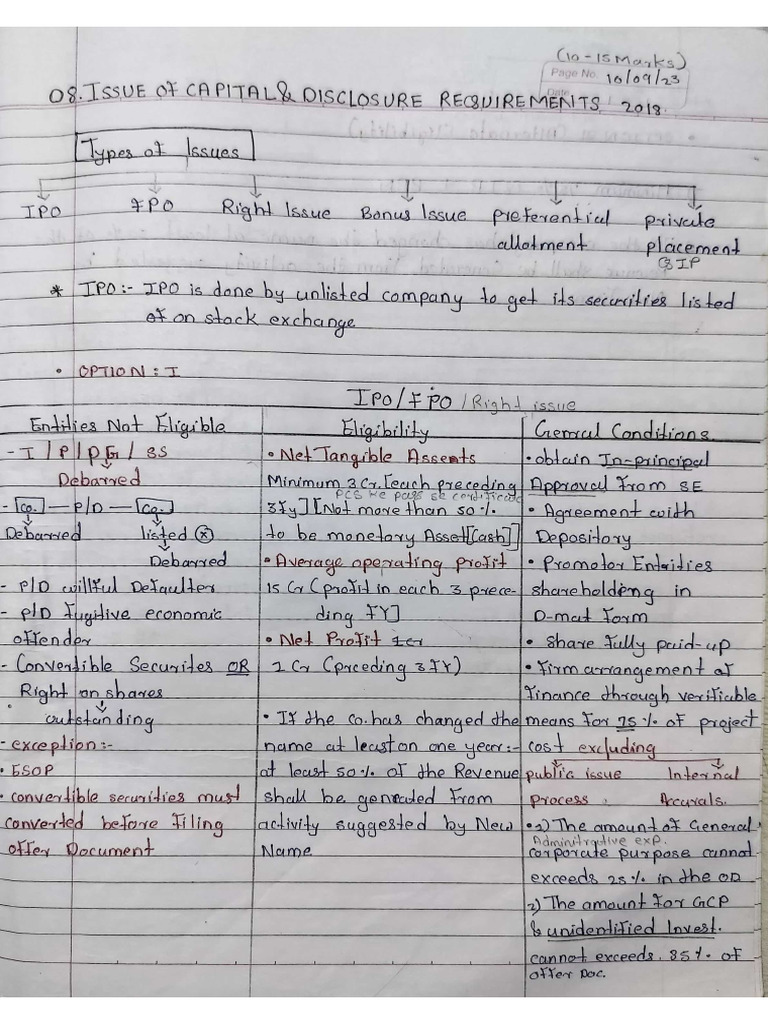 (10-15 Marks)
Page No. 10/09/23
Date
08. ISSUE OF CAPITAL & DISCLOSURE REQUIREMENTS 2018.
Types of Issues
IPO FPO Right Issue Bonus Issue preferential private
allotment placement
QIP
* IPO:- IPO is done by unlisted company to get its securities listed
of on stock exchange
• OPTION: I
IPO/FPO/Right issue
Entities Not Eligible
- I / P / PG / SS
Debarred
- [co.] — P/D — [co.]
Debarred listed ⓧ
Debarred
- P/D willful Defaulter
- P/D fugitive economic
offender
- Convertible Securites OR
Right on shares
outstanding
- exception:-
• ESOP
• convertible securities must
converted before filing
offer Document
Eligibility
• Net Tangible Assents
Minimum 3 Cr. [each preceding
3 Fy] [Not more than 50%
to be monetory Asset [cash]]
• Average operating profit
15 Cr (profit in each 3 prece-
ding FY]
• Net Profit
1 Cr (preceding 3 FY)
• If the co. has changed the
name at least on one year:-
at least 50% of the Revenue
shall be genrated from
activity suggested by New
Name
General Conditions.
• obtain In-principal
Approval from SE
• Agreement with
Depository
• Promotor Entities
shareholding in
D-mat form
• share fully paid-up
• firm arrangement of
finance through verifiable
means for 75% of project
cost excluding
public issue Internal
process, Accurals.
• 1) The amount of General
Adminitrative exp.
corporate purpose cannot
exceeds 25% in the OD
2) The amount for GCP
& unidentified Invest.
cannot exceeds 35% of
offer Doc.